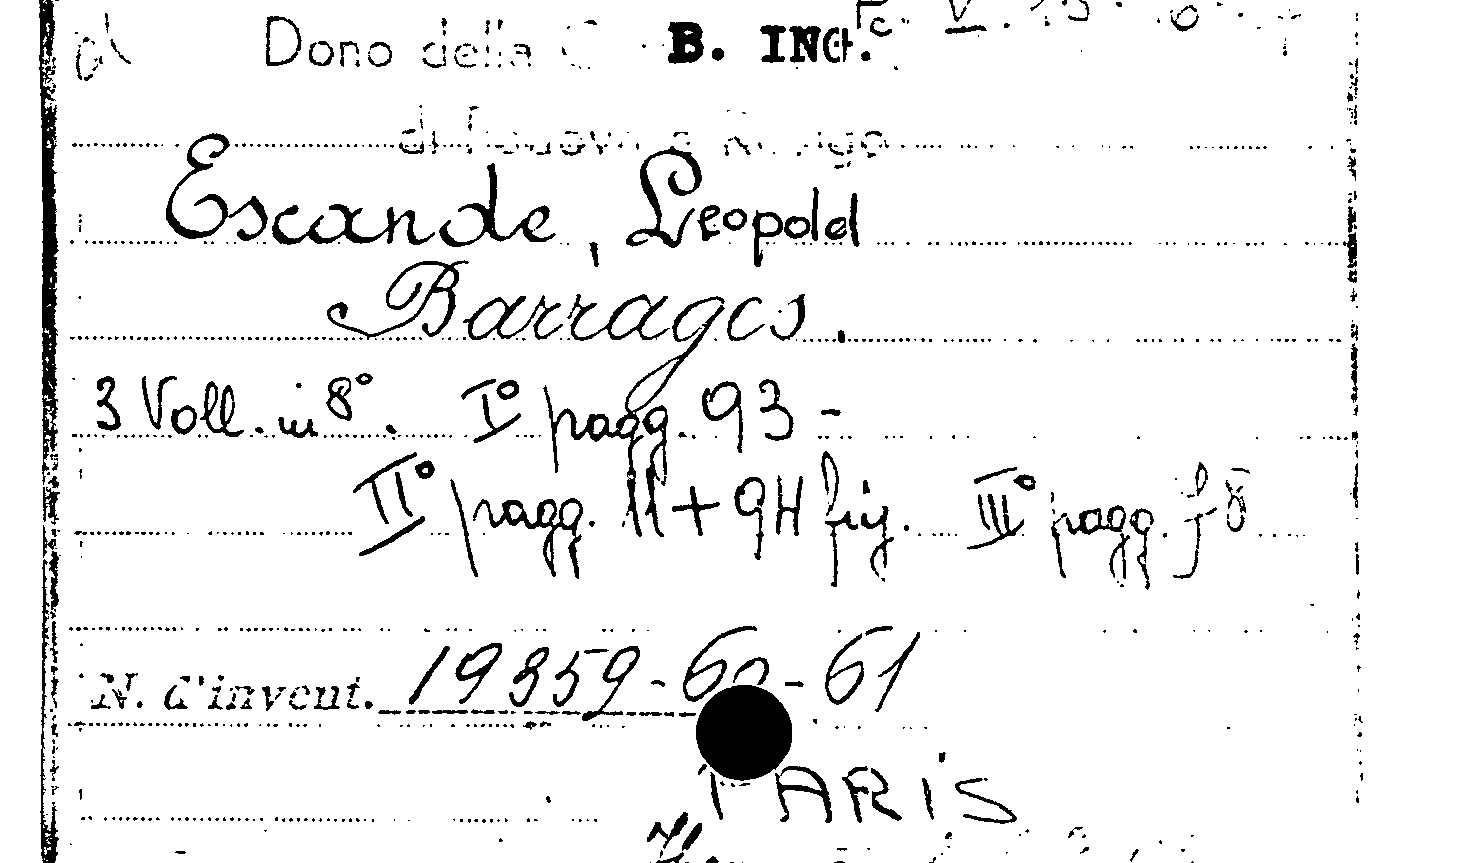 Dono della B. ING.
di Padova e Rovigo
Escande, Leopold
Barrages.
3 Voll. in 8°. I° pagg. 93 -
II° pagg. 11 + 94 fig. III° pagg.
N. d'invent. 19359-60-61
PARIS